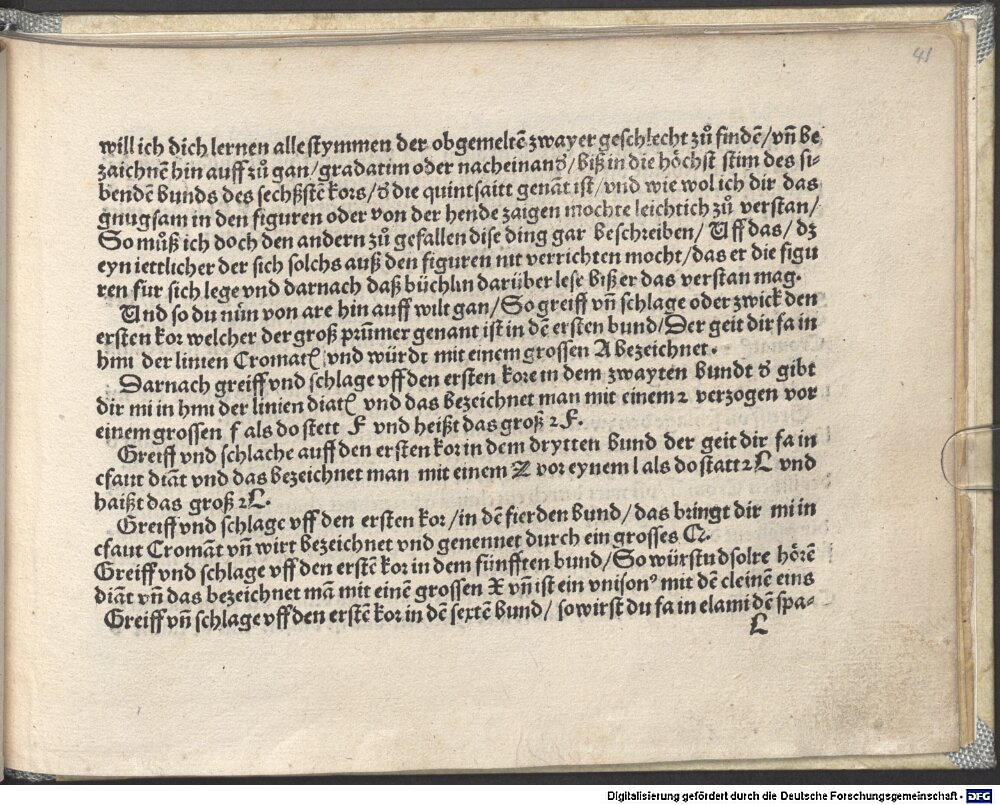 41
will ich dich lernen alle stymmen der obgemeltē zwayer geschlecht zů findē/vn̄ be
zaichnē hin auff zů gan/gradatim oder nacheinanď/biß in die höchst stim des si-
bendē bunds des sechßstē kors/ď die quintsaitt genāt ist/vnd wie wol ich dir das
gnugsam in den figuren oder von der hende zaigen mochte leichtich zů verstan/
So můß ich doch den andern zů gefallen dise ding gar beschreiben/Uff das/dz
eyn iettlicher der sich solchs auß den figuren nit verrichten mocht/das er die figu
ren für sich lege vnd darnach daß büchlin darüber lese biß er das verstan mag.
Und so du nůn von are hin auff wilt gan/So greiff vn̄ schlage oder zwick den
ersten kor welcher der groß prūmer genant ist in dē ersten bund/Der geit dir fa in
hmi der linien Cromatꝭ vnd würdt mit einem grossen A bezeichnet.
Darnach greiff vnd schlage vff den ersten kore in dem zwayten bundt ď gibt
dir mi in hmi der linien diatꝭ vnd das bezeichnet man mit einem 2 verzogen vor
einem grossen f als do stett F vnd heißt das groß 2F.
Greiff vnd schlache auff den ersten kor in dem drytten bund der geit dir fa in
cfaut diāt vnd das bezeichnet man mit einem Z vor eynem l als do statt 2L vnd
haißt das groß 2L.
Greiff vnd schlage vff den ersten kor/in dē fierden bund/das bringt dir mi in
cfaut Cromāt vn̄ wirt bezeichnet vnd genennet durch ein grosses Q.
Greiff vnd schlage vff den erstē kor in dem fünfften bund/So würstu dsolre hörē
diāt vn̄ das bezeichnet mā mit einē grossen X vn̄ ist ein vnisonꝰ mit dē cleinē eins
Greiff vn̄ schlage vff den erstē kor in dē sextē bund/so wirst du fa in elami dē spa-
L
Digitalisierung gefördert durch die Deutsche Forschungsgemeinschaft - DFG